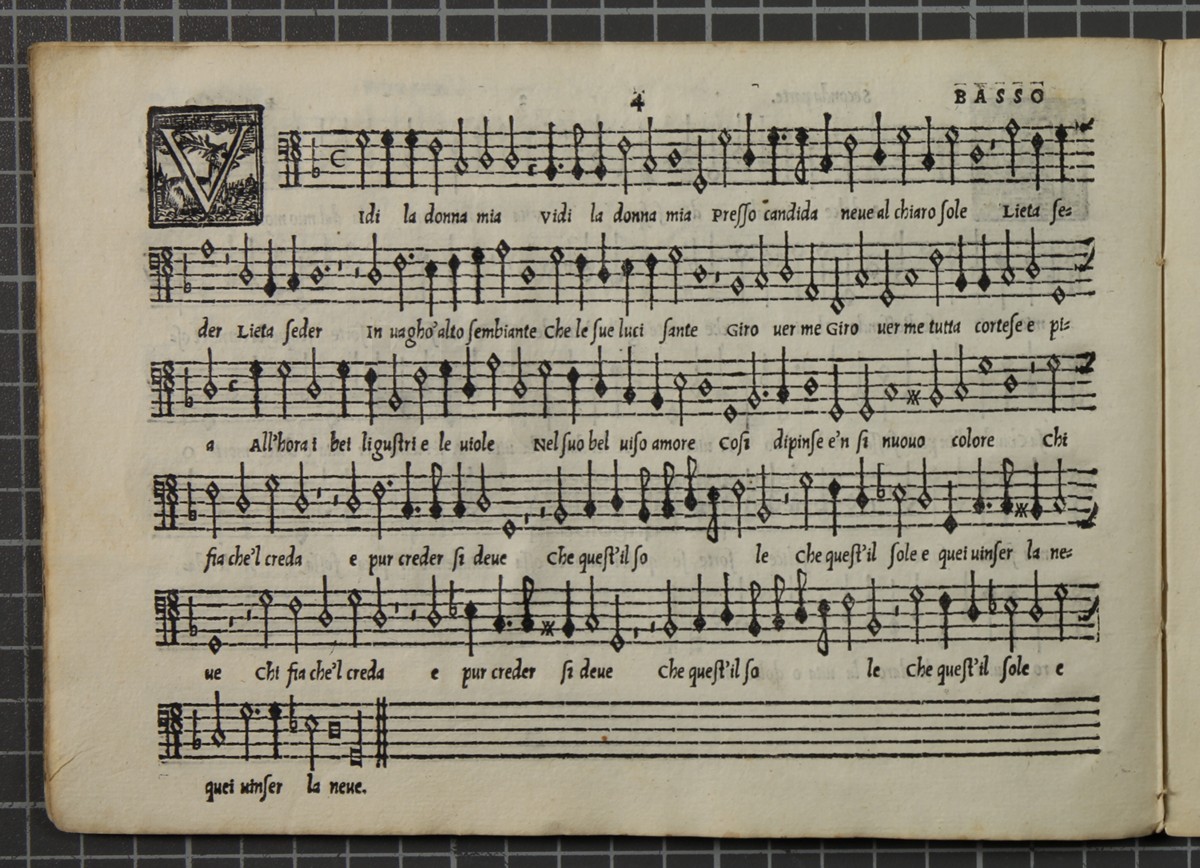 4
BASSO
VIdi la donna mia Vidi la donna mia Presso candida neue al chiaro sole Lieta se=
der Lieta seder In uagho'alto sembiante Che le sue luci sante Giro uer me Giro uer me tutta cortese e pi=
a All'hora i bei ligustri e le uiole Nel suo bel uiso amore Cosi dipinse e'n si nuouo colore Chi
fia che'l creda e pur creder si deue Che quest'il so le Che quest'il sole e quei uinser la ne=
ue Chi fia che'l creda e pur creder si deue Che quest'il so le Che quest'il sole e
quei uinser la neue.